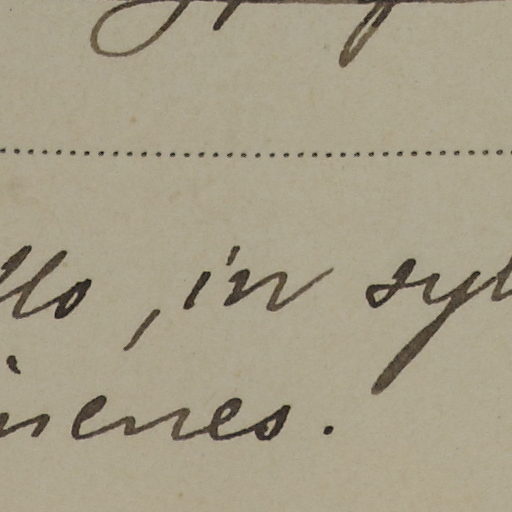 llo, in syl
inenes.